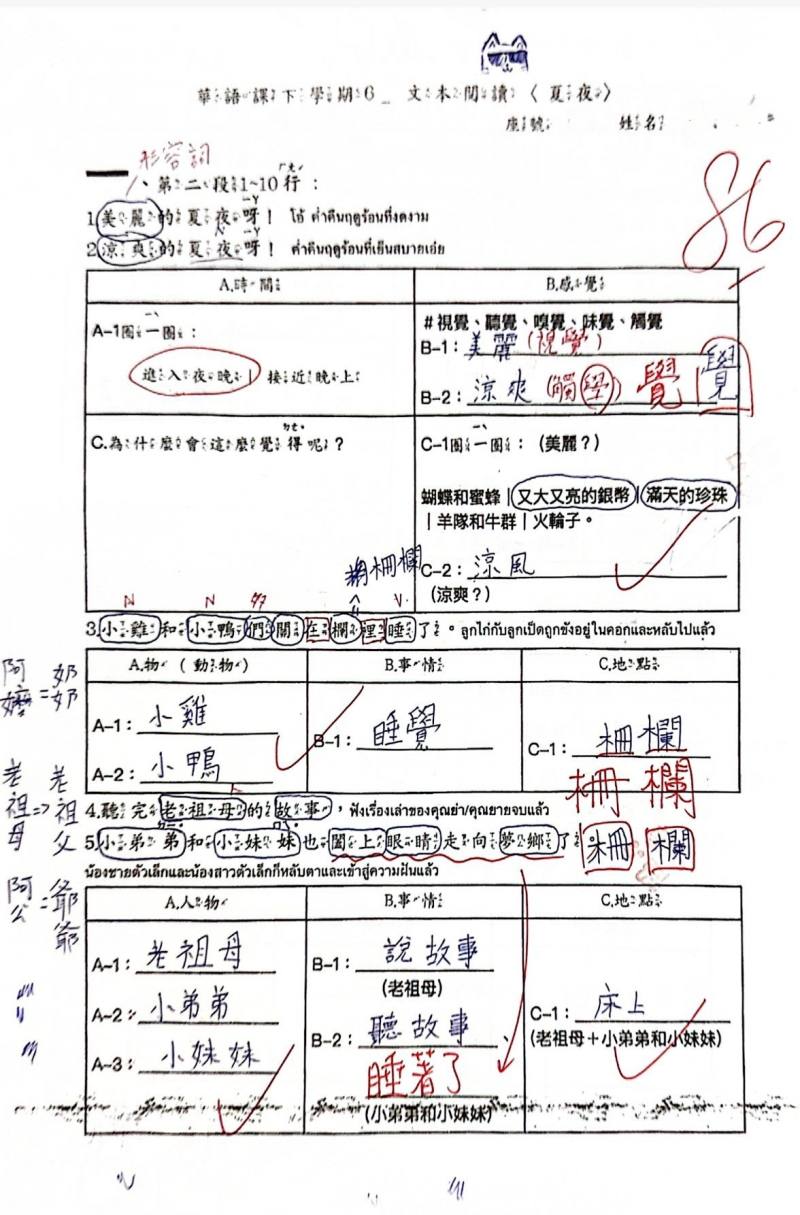 華語課下學期6_ 文本閱讀〈夏夜〉
座號 姓名
形容詞
86
、第二段1~10行：
1.美麗的夏夜呀！ โอ้ ค่ำคืนฤดูร้อนที่งดงาม
2.涼爽的夏夜呀！ ค่ำคืนฤดูร้อนที่เย็นสบายเอ่ย
A.時間 B.感覺
A-1圈一圈：
進入夜晚| 接近晚上
#視覺、聽覺、嗅覺、味覺、觸覺
B-1：美麗(視覺)
B-2：涼爽(觸學) 覺 覺
C.為什麼會這麼覺得呢？
C-1圈一圈：(美麗？)
蝴蝶和蜜蜂|又大又亮的銀幣|滿天的珍珠
|羊隊和牛群|火輪子。
C-2：涼風
(涼爽？)
柵欄
N N V
3.小雞和小鴨們關在欄裡睡了。 ลูกไก่กับลูกเป็ดถูกขังอยู่ในคอกและหลับไปแล้ว
A.物(動物) B.事情 C.地點
A-1：小雞
A-2：小鴨
B-1：睡覺
C-1：柵欄
柵欄
4.聽完老祖母的故事，ฟังเรื่องเล่าของคุณย่า/คุณยายจบแล้ว
5.小弟弟和小妹妹也闔上眼睛走向夢鄉了
柵 欄
น้องชายตัวเล็กและน้องสาวตัวเล็กก็หลับตาและเข้าสู่ความฝันแล้ว
阿嬤=奶奶
老祖母=>老祖父
阿公=爺爺
A.人物 B.事情 C.地點
A-1：老祖母
A-2：小弟弟
A-3：小妹妹
B-1：說故事
(老祖母)
B-2：聽故事、
睡著了
(小弟弟和小妹妹)
C-1：床上
(老祖母+小弟弟和小妹妹)